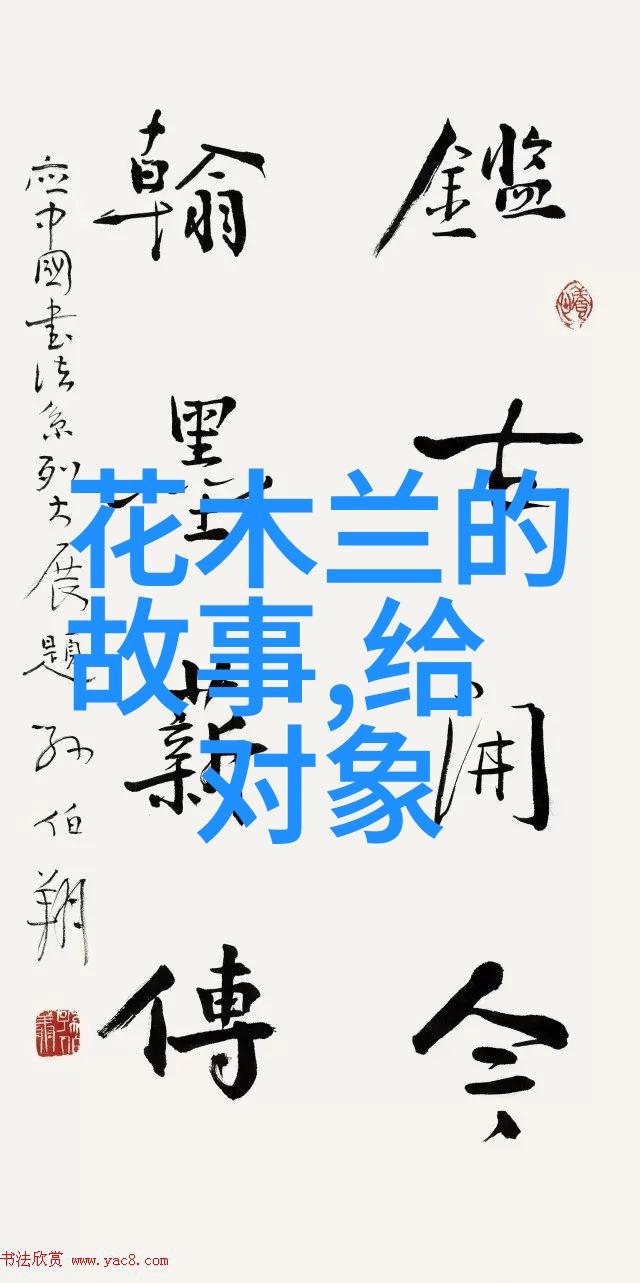 鑑古開今
翰墨薪傳
應中國書法系列大展題孙伯翔
花木兰的
故事,给
对象
书法欣赏 www.yac8.com